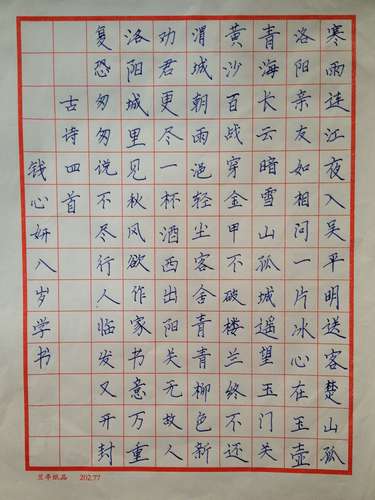 寒雨连江夜入吴平明送客楚山孤
洛阳亲友如相问一片冰心在玉壶
青海长云暗雪山孤城遥望玉门关
黄沙百战穿金甲不破楼兰终不还
渭城朝雨浥轻尘客舍青青柳色新
劝君更尽一杯酒西出阳关无故人
洛阳城里见秋风欲作家书意万重
复恐匆匆说不尽行人临发又开封
古诗四首
钱心妍八岁学书
兰亭纸品 202.77